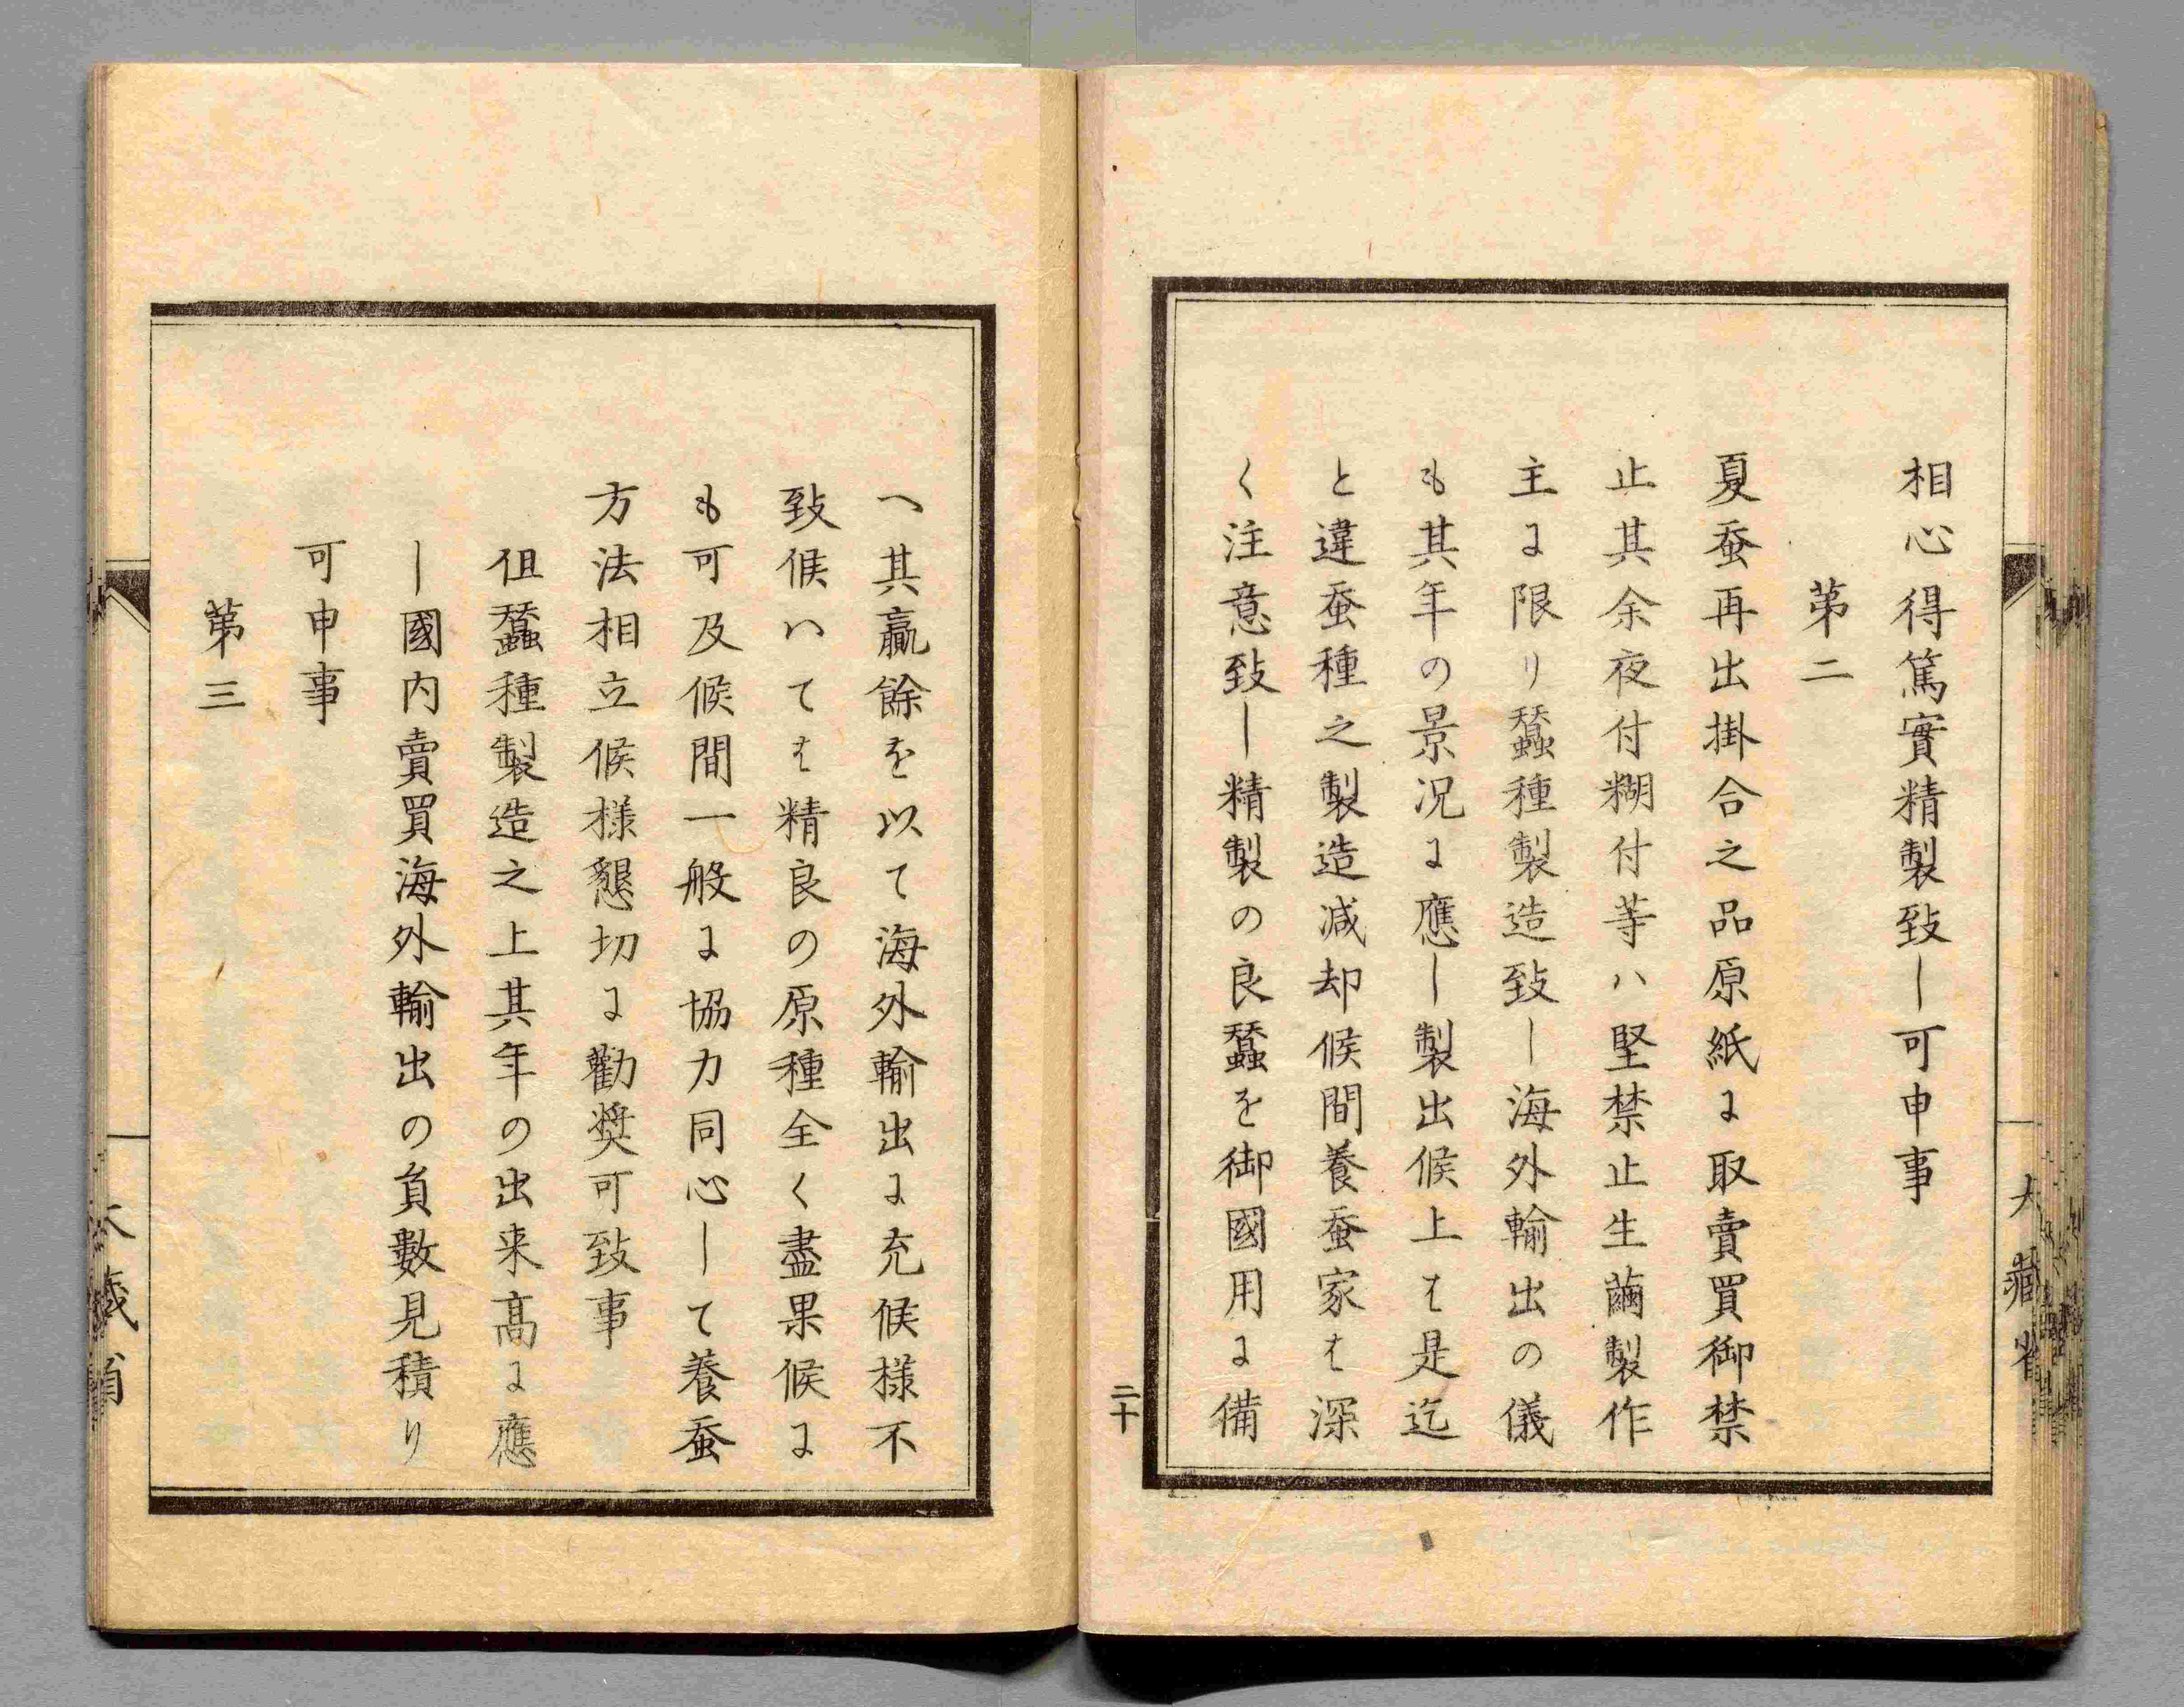 相心得篤實精製致し可申事
第二
夏蚕再出掛合之品原紙に取賣買御禁
止其余夜付糊付等ハ堅禁止生繭製作
主に限り蠶種製造致し海外輸出の儀
も其年の景况に應し製出候上は是迄
と違蚕種之製造减却候間養蚕家は深
く注意致し精製の良蠶を御國用に備
二十
へ其贏餘を以て海外輸出に充候様不
致候ハては精良の原種全く盡果候に
も可及候間一般に協力同心して養蚕
方法相立候様懇切に勸奨可致事
但蠶種製造之上其年の出来高に應
し國内賣買海外輸出の負數見積り
可申事
第三
大藏省
大藏省